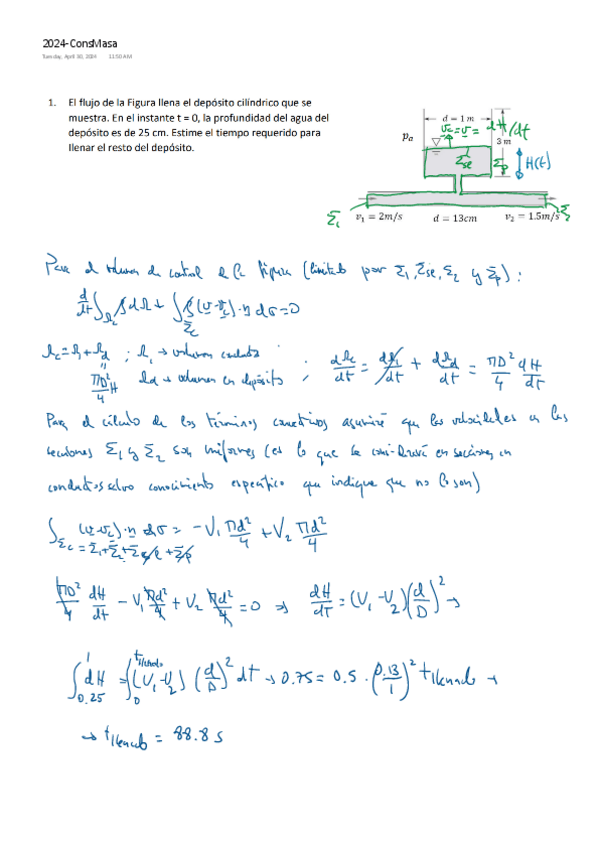 2024-ConsMasa
Tuesday, April 30, 2024 11:50 AM
1. El flujo de la Figura llena el depósito cilíndrico que se
muestra. En el instante t = 0, la profundidad del agua del
depósito es de 25 cm. Estime el tiempo requerido para
llenar el resto del depósito.
d = 1 m
v_c = v = dH/dt
p_a
3 m
Σ_se Σ_p H(t)
Σ_1 v₁ = 2m/s d = 13cm v₂ = 1.5m/s Σ_2
Para el volumen de control de la figura (limitado por Σ_1, Σ_se, Σ_2 y Σ_p):
d/dt ∫_Ω_c ρ dΩ + ∫_Σ_c ρ(v-v_c)·n dσ = 0
Ω_c = Ω_1 + Ω_d ; Ω_1 → volumen conducto
πD²/4 H Ω_d → volumen en depósito ; dΩ_c/dt = dΩ_1/dt + dΩ_d/dt = πD²/4 dH/dt
Para el cálculo de los términos convectivos asumiré que las velocidades en las
secciones Σ_1 y Σ_2 son uniformes (es lo que se considerará en secciones en
conductos salvo conocimiento específico que indique que no lo son)
∫_Σ_c = Σ_1+Σ_2+Σ_se+Σ_p (v-v_c)·n dσ = -V₁ πd²/4 + V₂ πd²/4
πD²/4 dH/dt - V₁ πd²/4 + V₂ πd²/4 = 0 ⇒ dH/dt = (V₁-V₂)(d/D)² →
∫_0.25^1 dH = ∫_0^t_llenado (V₁-V₂)(d/D)² dt → 0.75 = 0.5 · (0.13/1)² t_llenado →
→ t_llenado = 88.8 s